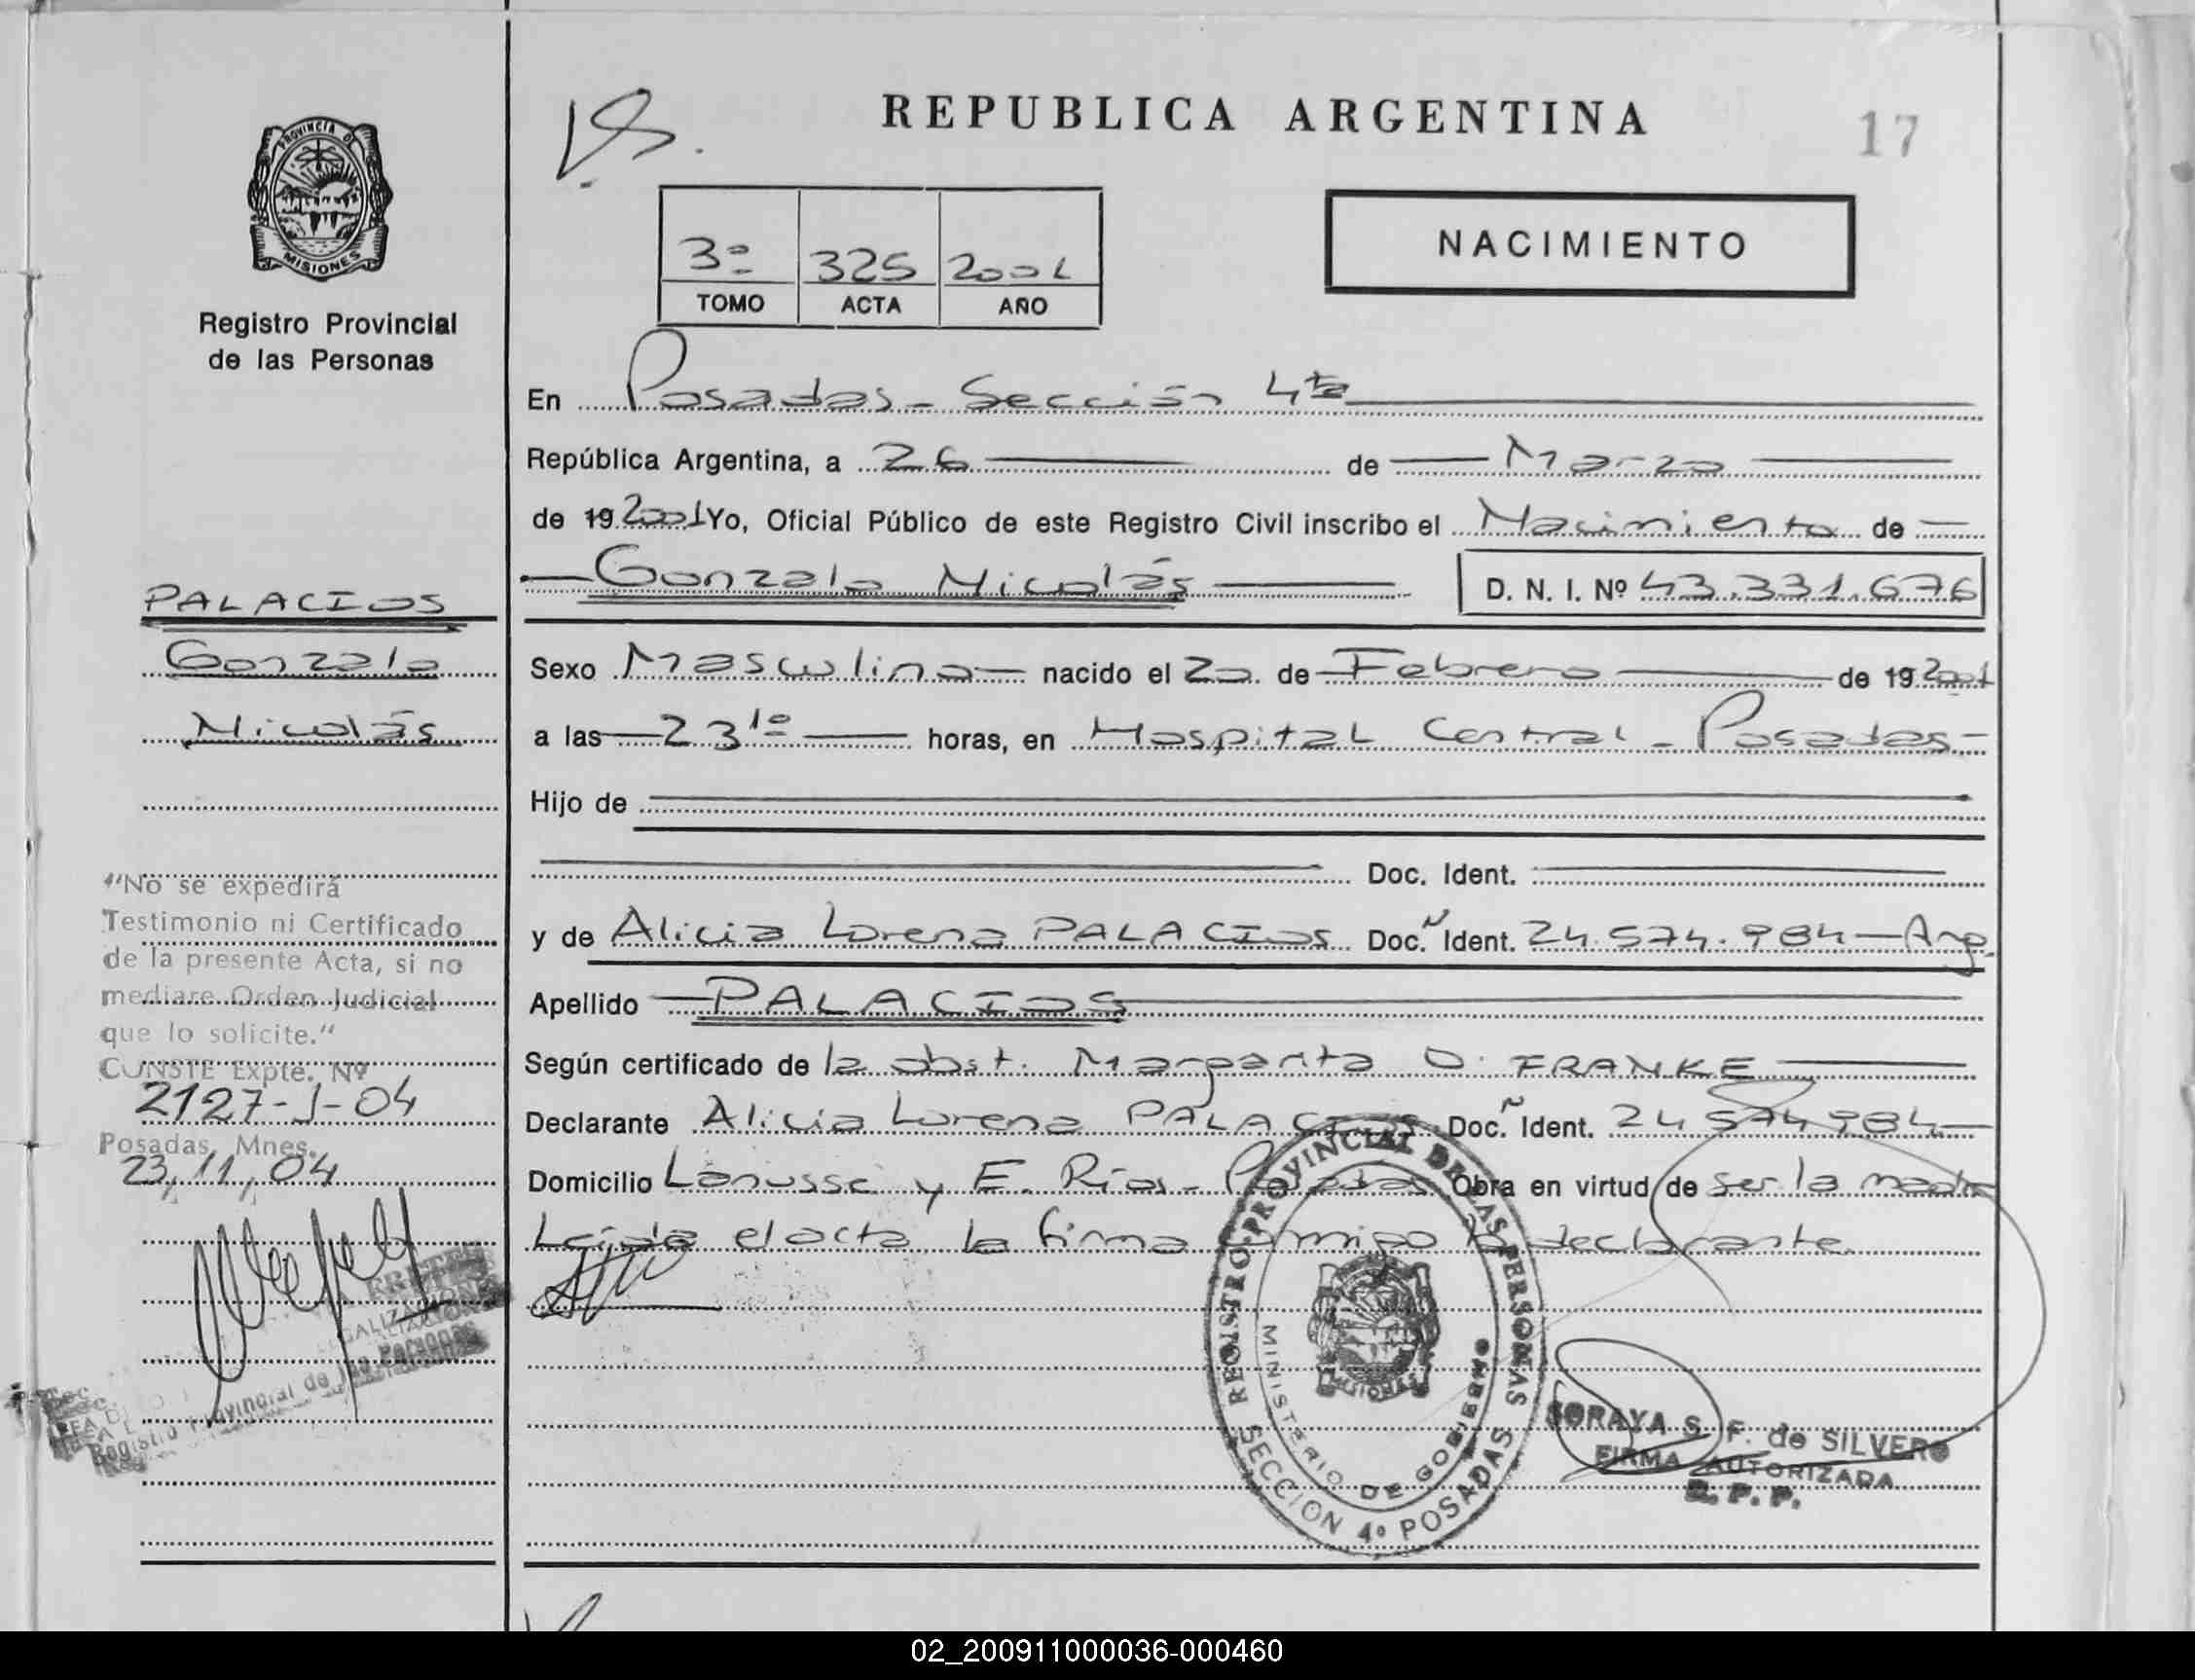 REPUBLICA ARGENTINA
17
PROVINCIA DE
MISIONES
Registro Provincial
de las Personas
3º 325 2001
TOMO ACTA AÑO
NACIMIENTO
En Posadas - Sección 4ta
República Argentina, a 26 de Marzo
de 19 2001 Yo, Oficial Público de este Registro Civil inscribo el Nacimiento de
Gonzalo Nicolás D. N. I. Nº 43.331.676
Sexo Masculino nacido el 20 de Febrero de 19 2001
a las 23 10 horas, en Hospital Central - Posadas -
Hijo de
Doc. Ident.
y de Alicia Lorena PALACIOS Doc. N Ident. 24.574.984 - Arg.
Apellido PALACIOS
Según certificado de la obst. Margarita O. FRANKE
Declarante Alicia Lorena PALACIOS Doc. N Ident. 24 574 984
Domicilio Lanusse y E. Ríos - Posadas Obra en virtud de ser la madre
Leída el acta la firma conmigo la declarante.
PALACIOS
Gonzalo
Nicolás
"No se expedirá
Testimonio ni Certificado
de la presente Acta, si no
mediare Orden Judicial
que lo solicite."
CONSTE Expte. Nº
2127-J-04
Posadas, Mnes.
23, 11, 04
Registro Provincial de las Personas
REGISTRO PROVINCIAL DE LAS PERSONAS
MINISTERIO DE GOBIERNO
MISIONES
SECCION 4º POSADAS
SORAYA S. F. de SILVERO
FIRMA AUTORIZADA
R. P. P.
02_200911000036-000460